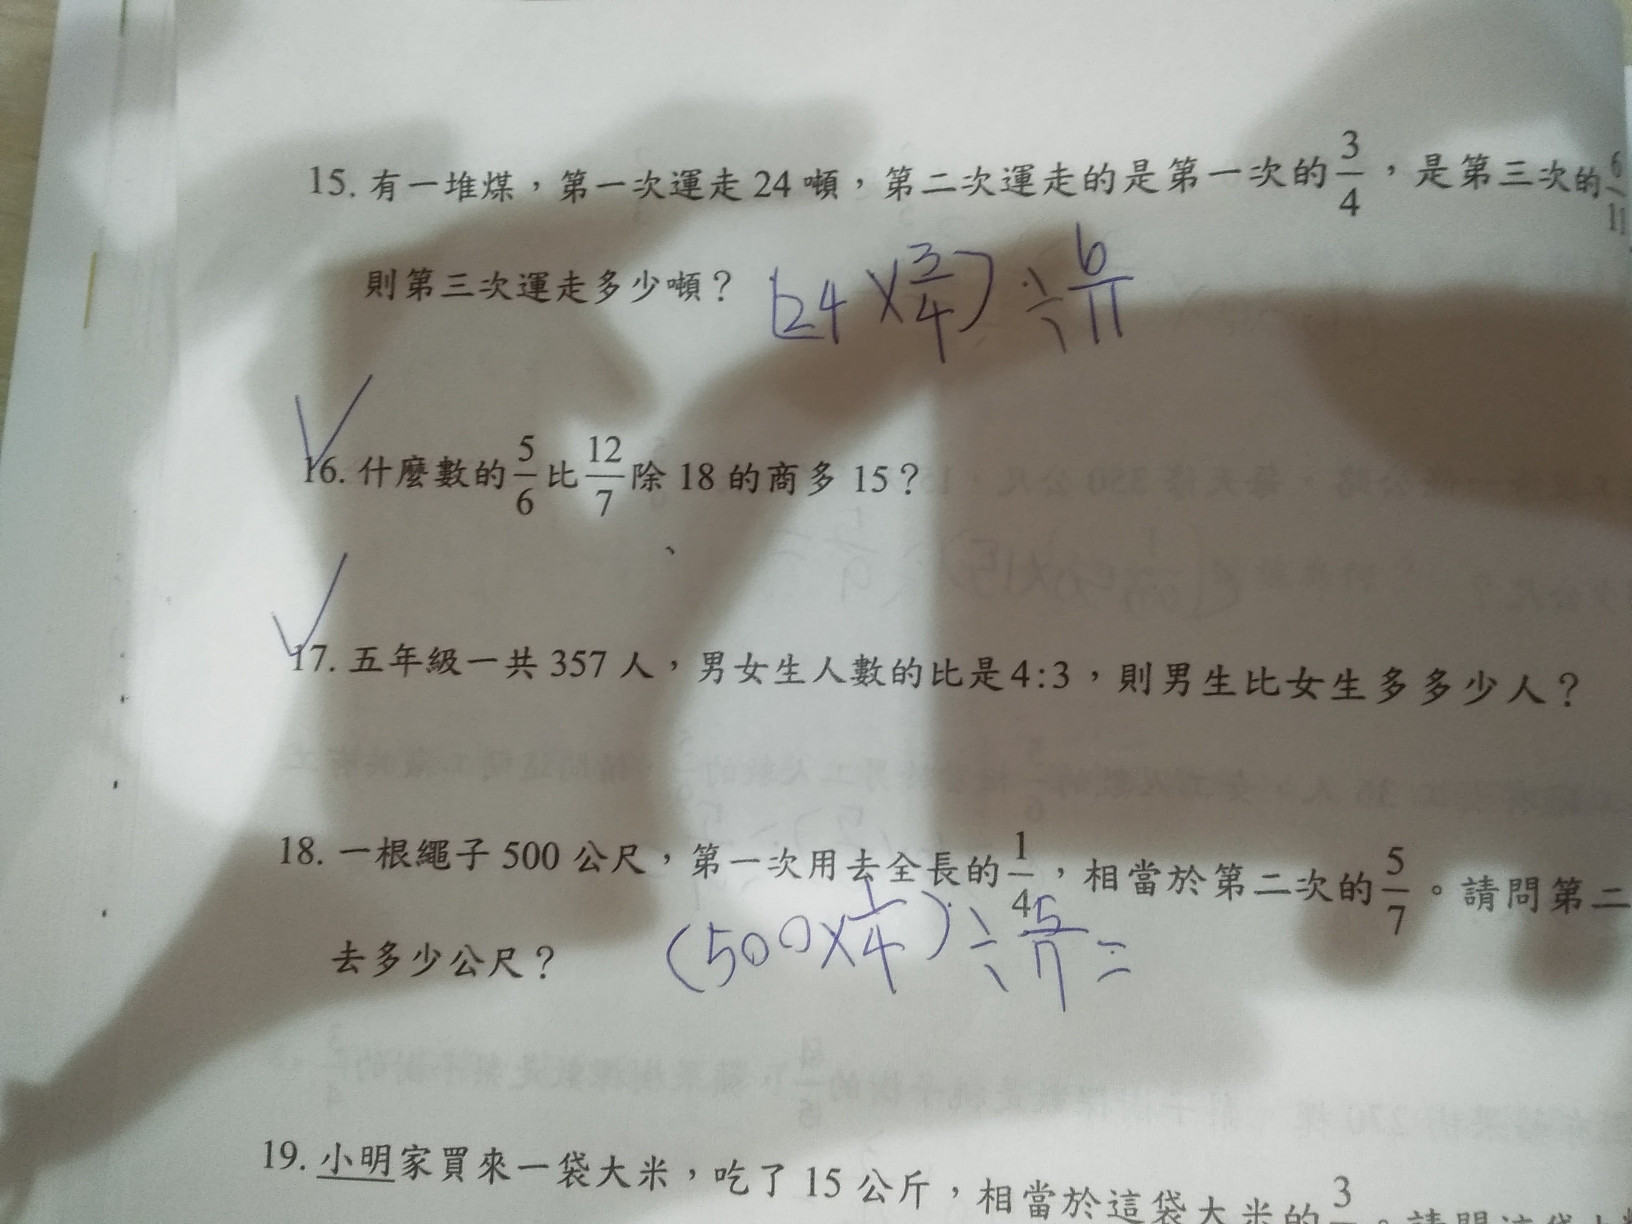 15. 有一堆煤，第一次運走 24 噸，第二次運走的是第一次的 3/4，是第三次的 6/11
則第三次運走多少噸？ (24 × 3/4) ÷ 6/11
16. 什麼數的 5/6 比 12/7 除 18 的商多 15？
17. 五年級一共 357 人，男女生人數的比是 4:3，則男生比女生多多少人？
18. 一根繩子 500 公尺，第一次用去全長的 1/4，相當於第二次的 5/7。請問第二
去多少公尺？ (500 × 1/4) ÷ 5/7 =
19. 小明家買來一袋大米，吃了 15 公斤，相當於這袋大米的 3